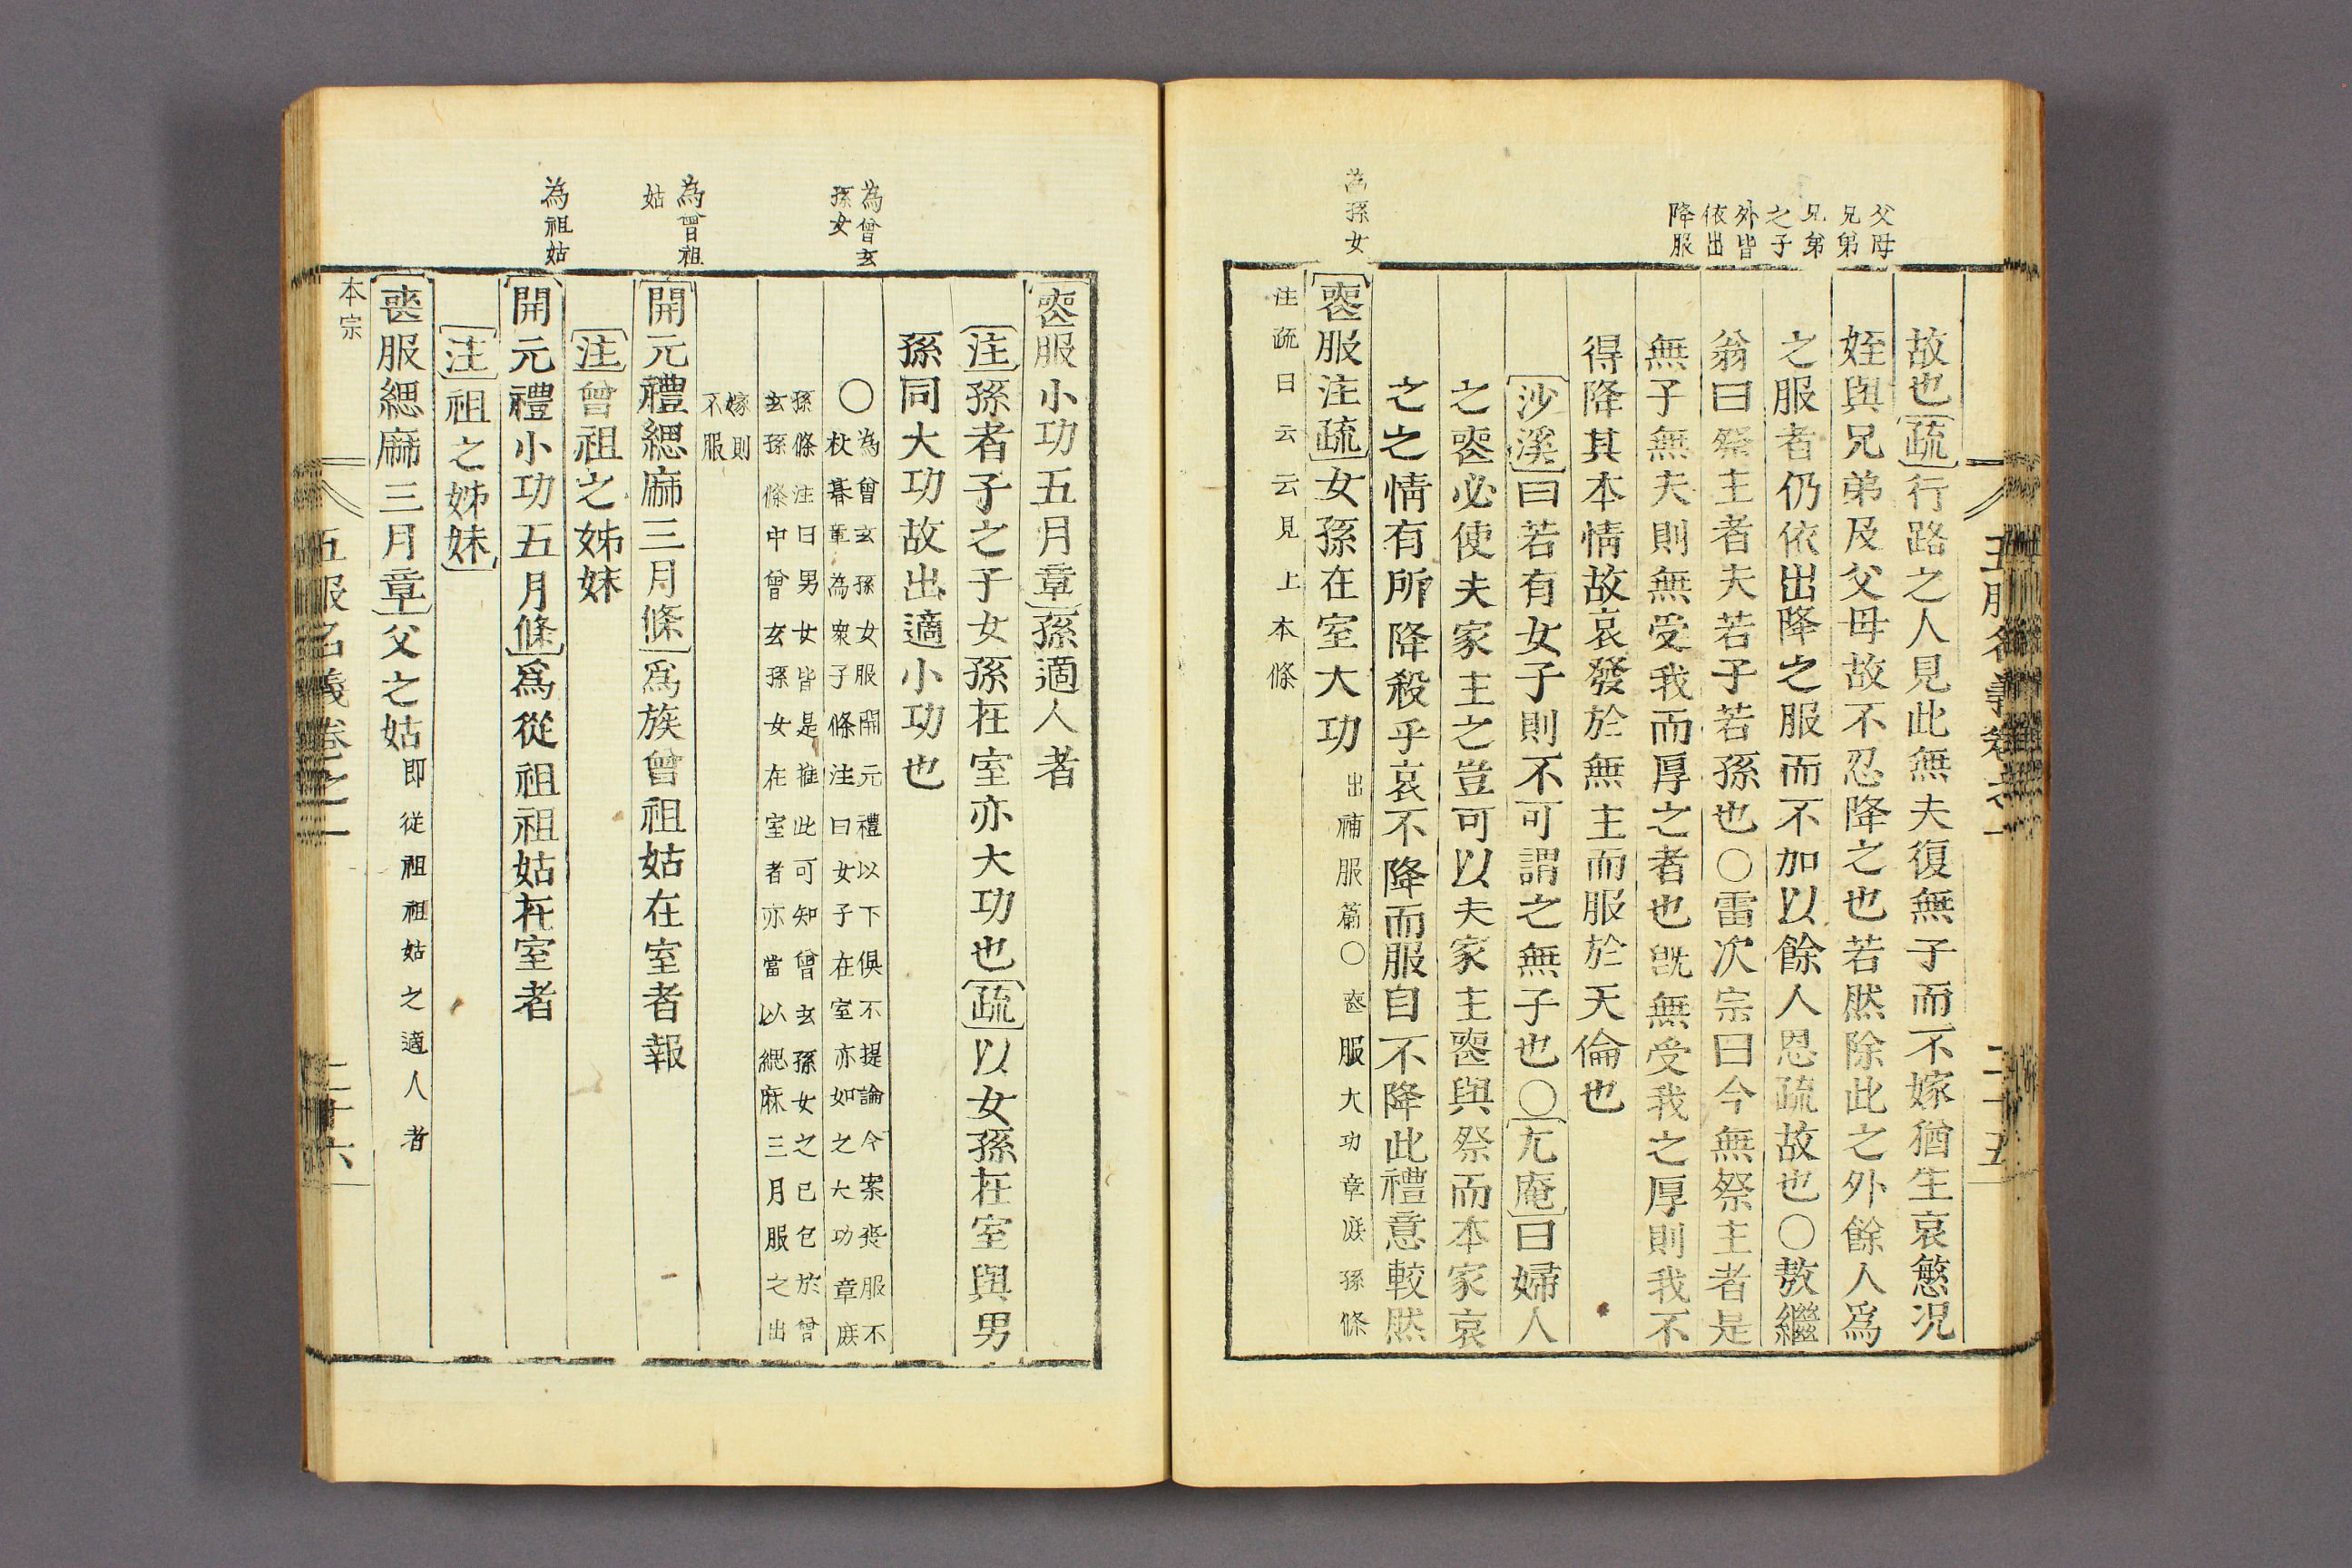 父母
兄弟
兄弟
之子
外皆
依出
降服
故也疏行路之人見此無夫復無子而不嫁猶生哀慜况
姪與兄弟及父母故不忍降之也若然除此之外餘人爲
之服者仍依出降之服而不加以餘人恩疏故也○敖繼
翁曰祭主者夫若子若孫也○雷次宗曰今無祭主者是
無子無夫則無受我而厚之者也旣無受我之厚則我不
得降其本情故哀發於無主而服於天倫也
沙溪曰若有女子則不可謂之無子也○尤庵曰婦人
之喪必使夫家主之豈可以夫家主喪與祭而本家哀
之之情有所降殺乎哀不降而服自不降此禮意較然
為孫女
喪服注疏女孫在室大功出補服篇○喪服大功章庶孫條
注疏曰云云見上本條
五服名義卷之一
二十五
喪服小功五月章孫適人者
注孫者子之子女孫在室亦大功也疏以女孫在室與男
孫同大功故出適小功也
為曾玄
孫女
○為曾玄孫女服開元禮以下俱不提論今案喪服不
杖朞章為衆子條注曰女子在室亦如之大功章庶
孫條注曰男女皆是推此可知曾玄孫女之已包於曾
玄孫條中曾玄孫女在室者亦當以緦麻三月服之出
嫁則
不服
為曾祖
姑
開元禮緦麻三月條爲族曾祖姑在室者報
注曾祖之姊妹
為祖姑
開元禮小功五月條爲從祖祖姑在室者
注祖之姊妹
喪服緦麻三月章父之姑即從祖祖姑之適人者
本宗
五服名義卷之一
二十六